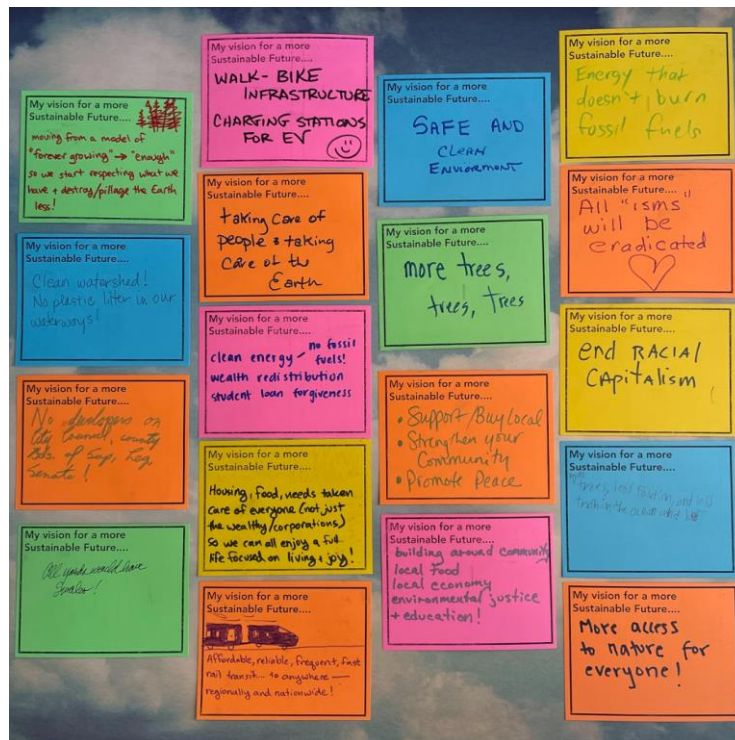 My vision for a more
Sustainable Future....
moving from a model of
"forever growing" → "enough"
so we start respecting what we
have + destroy/pillage the Earth
less!
My vision for a more
Sustainable Future....
Clean watershed!
No plastic litter in our
waterways!
My vision for a more
Sustainable Future....
No developers on
City Council, county
Bds. of Sup, Leg,
Senate!
My vision for a more
Sustainable Future....
All yards would have
Swales!
My vision for a more
Sustainable Future....
WALK-BIKE
INFRASTRUCTURE
CHARGING STATIONS
FOR EV
My vision for a more
Sustainable Future....
taking care of
people & taking
care of the
Earth
My vision for a more
Sustainable Future....
clean energy - no fossil
fuels!
wealth redistribution
student loan forgiveness
My vision for a more
Sustainable Future....
Housing, food, needs taken
care of everyone (not just
the wealthy/corporations)
so we can all enjoy a full
life focused on living + joy!
My vision for a more
Sustainable Future....
Affordable, reliable, frequent, fast
rail transit... to anywhere —
regionally and nationwide!
My vision for a more
Sustainable Future....
SAFE AND
CLEAN
ENVIORMENT
My vision for a more
Sustainable Future....
more trees,
trees, trees
My vision for a more
Sustainable Future....
• Support/Buy Local
• Strengthen your
Community
• Promote Peace
My vision for a more
Sustainable Future....
building around community
local food
local economy
environmental justice
+ education!
My vision for a more
Sustainable Future....
Energy that
doesn't burn
fossil fuels
My vision for a more
Sustainable Future....
All "isms"
will be
eradicated
My vision for a more
Sustainable Future....
end RACIAL
CAPITALISM
My vision for a more
Sustainable Future....
trees, less pollution, and no
trash in the ocean and
My vision for a more
Sustainable Future....
More access
to nature for
everyone!